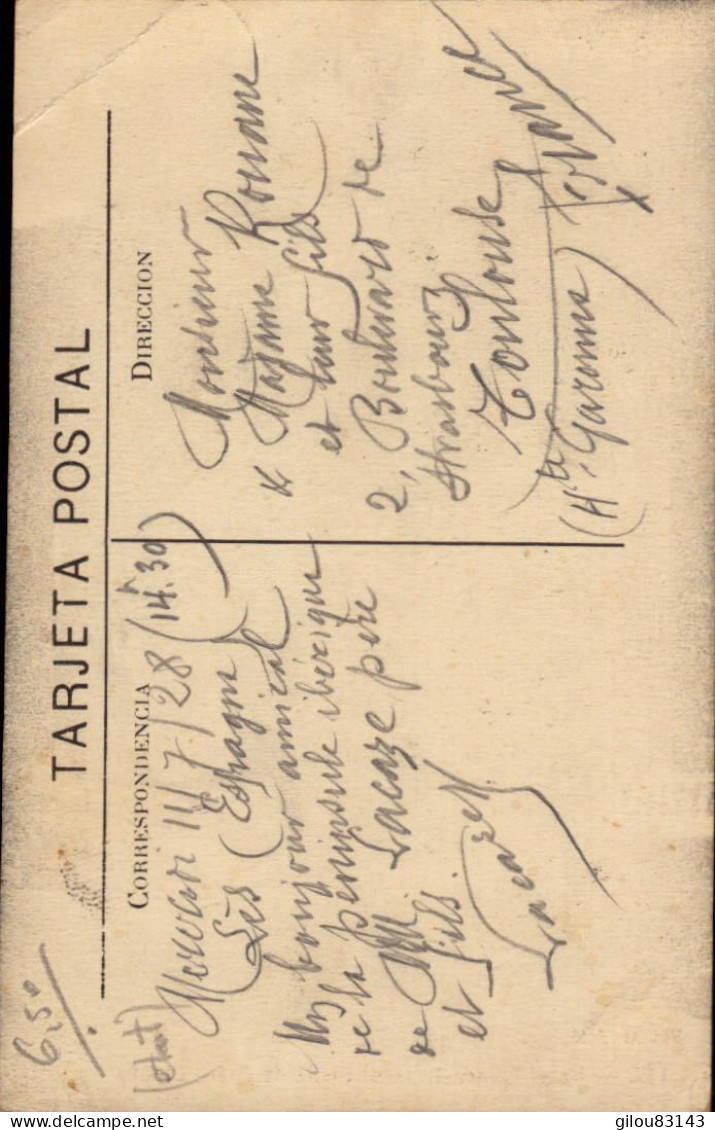 6,50
(etat)
TARJETA POSTAL
CORRESPONDENCIA
Mercredi 11/7/28 (14h.30)
Lès (Espagne)
Un bonjour amical
de la Péninsule ibérique
de MM. Lacaze père
et fils.
Lacaze
DIRECCION
Monsieur
& Madame Rouane
et leur fils
2, Boulevard de
Strasbourg
Toulouse
(Hte Garonne)
France
delcampe.net
gilou83143